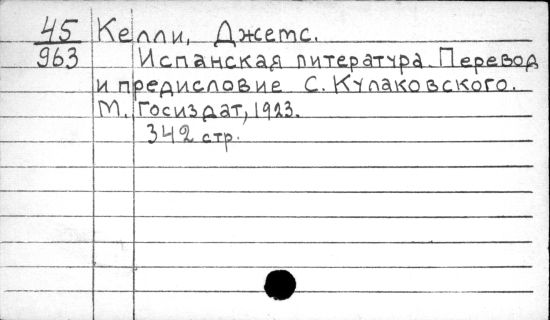 45 Келли, Джетс.
963 Испанская литература. Перевод
и предисловие С. Кулаковского.
М. Госиздат, 1923.
342 стр.